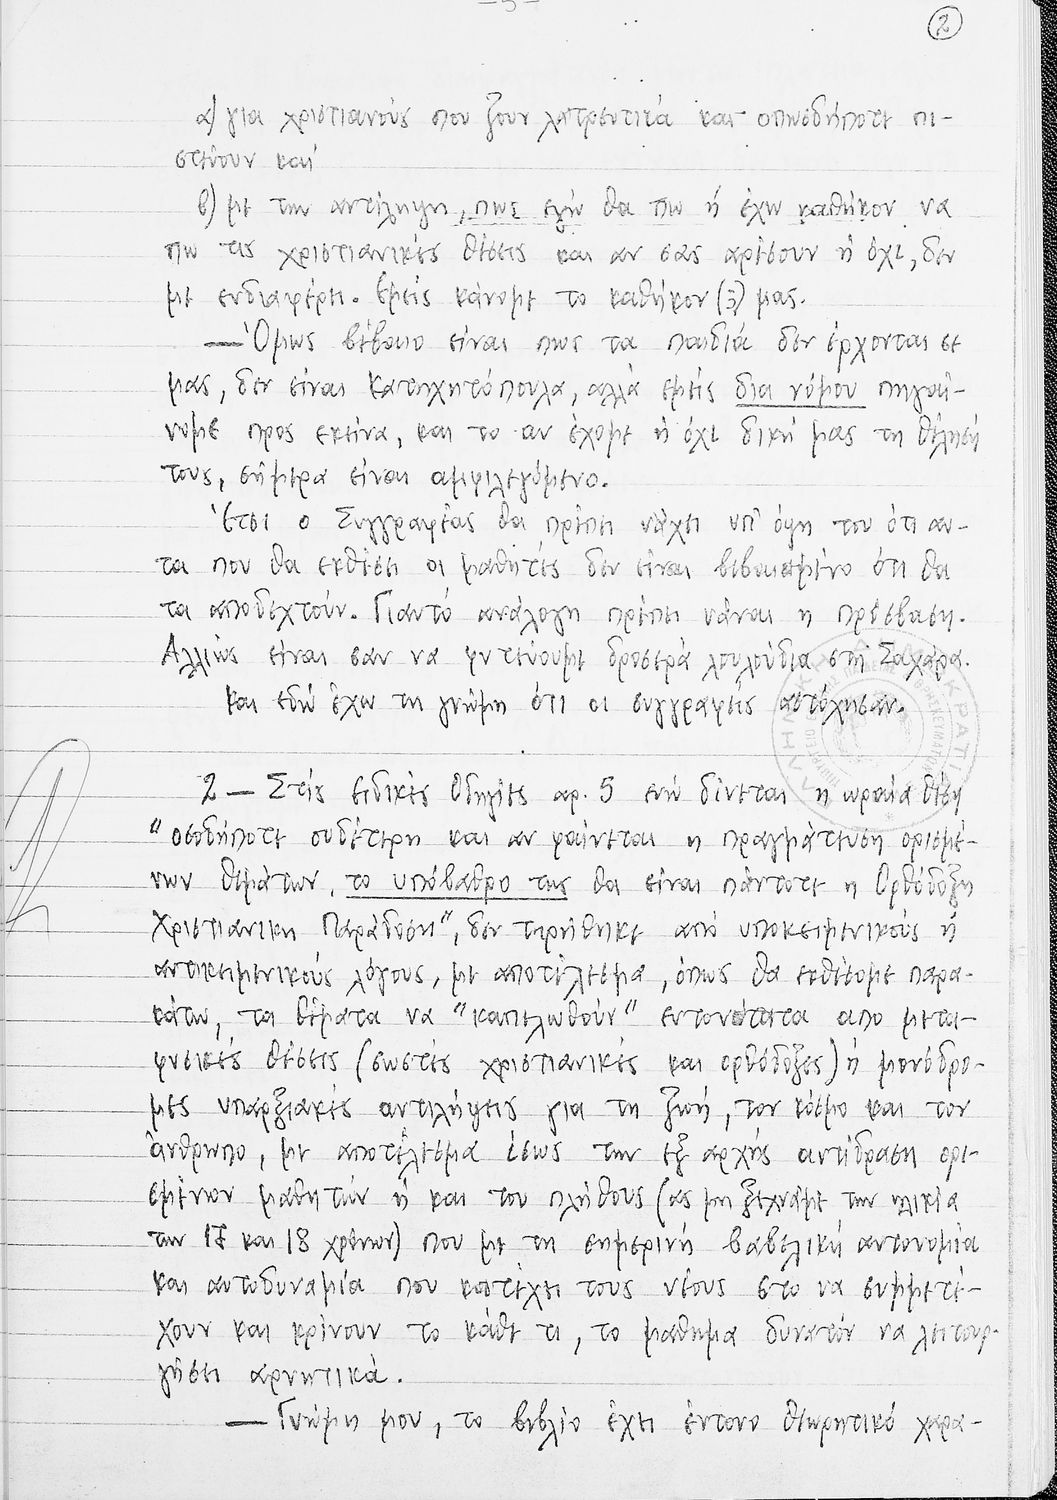 -5-
2
α) για χριστιανούς που ζουν λατρευτικά και οπωσδήποτε πι-
στεύουν και
β) με την αντίληψη, πως εγώ θα πω ή έχω καθήκον να
πω τις χριστιανικές θέσεις και αν σας αρέσουν ή όχι, δεν
με ενδιαφέρει. Εμείς κάνομε το καθήκον (;) μας.
— Όμως βέβαιο είναι πως τα παιδιά δεν έρχονται σε
μας, δεν είναι κατηχητόπουλα, αλλά εμείς δια νόμου πηγαί-
νομε προς εκείνα, και το αν έχομε ή όχι δική μας τη θέλησή
τους, σήμερα είναι αμφιλεγόμενο.
Έτσι ο Συγγραφέας θα πρέπει νάχει υπ' όψη του ότι αυ-
τα που θα εκθέσει οι μαθητές δεν είναι βεβαιωμένο ότι θα
τα αποδεχτούν. Γιαυτό ανάλογη πρέπει νάναι η πρόσβαση.
Αλλιώς είναι σαν να φυτεύουμε δροσερά λουλούδια στη Σαχάρα.
Και εδώ έχω τη γνώμη ότι οι συγγραφείς αστόχησαν.
2 — Στίς Ειδικές Οδηγίες αρ. 5 ενώ δίνεται η ωραία θέση
"οσοδήποτε ουδέτερη και αν φαίνεται η πραγμάτευση ορισμέ-
νων θεμάτων, το υπόβαθρο της θα είναι πάντοτε η Ορθόδοξη
Χριστιανική Παράδοση", δεν τηρήθηκε από υποκειμενικούς ή
αντικειμενικούς λόγους, με αποτέλεσμα, όπως θα εκθέσομε παρα-
κάτω, τα θέματα να "καπελωθούν" εντονότατα απο μετα-
φυσικές θέσεις (σωστές χριστιανικές και ορθόδοξες) ή μονόδρο-
μες υπαρξιακές αντιλήψεις για τη ζωή, τον κόσμο και τον
άνθρωπο, με αποτέλεσμα ίσως την εξ αρχής αντίδραση ορι-
σμένων μαθητών ή και του πλήθους (ας μη ξεχνάμε την ηλικία
των 17 και 18 χρόνων) που με τη σημερινή βαβελική αυτονομία
και αυτοδυναμία που κατέχει τους νέους στο να συμμετέ-
χουν και κρίνουν το κάθε τι, το μαθημα δυνατόν να λειτουρ-
γήσει αρνητικά.
— Γνώμη μου, το βιβλίο έχει έντονο θεωρητικό χαρα-